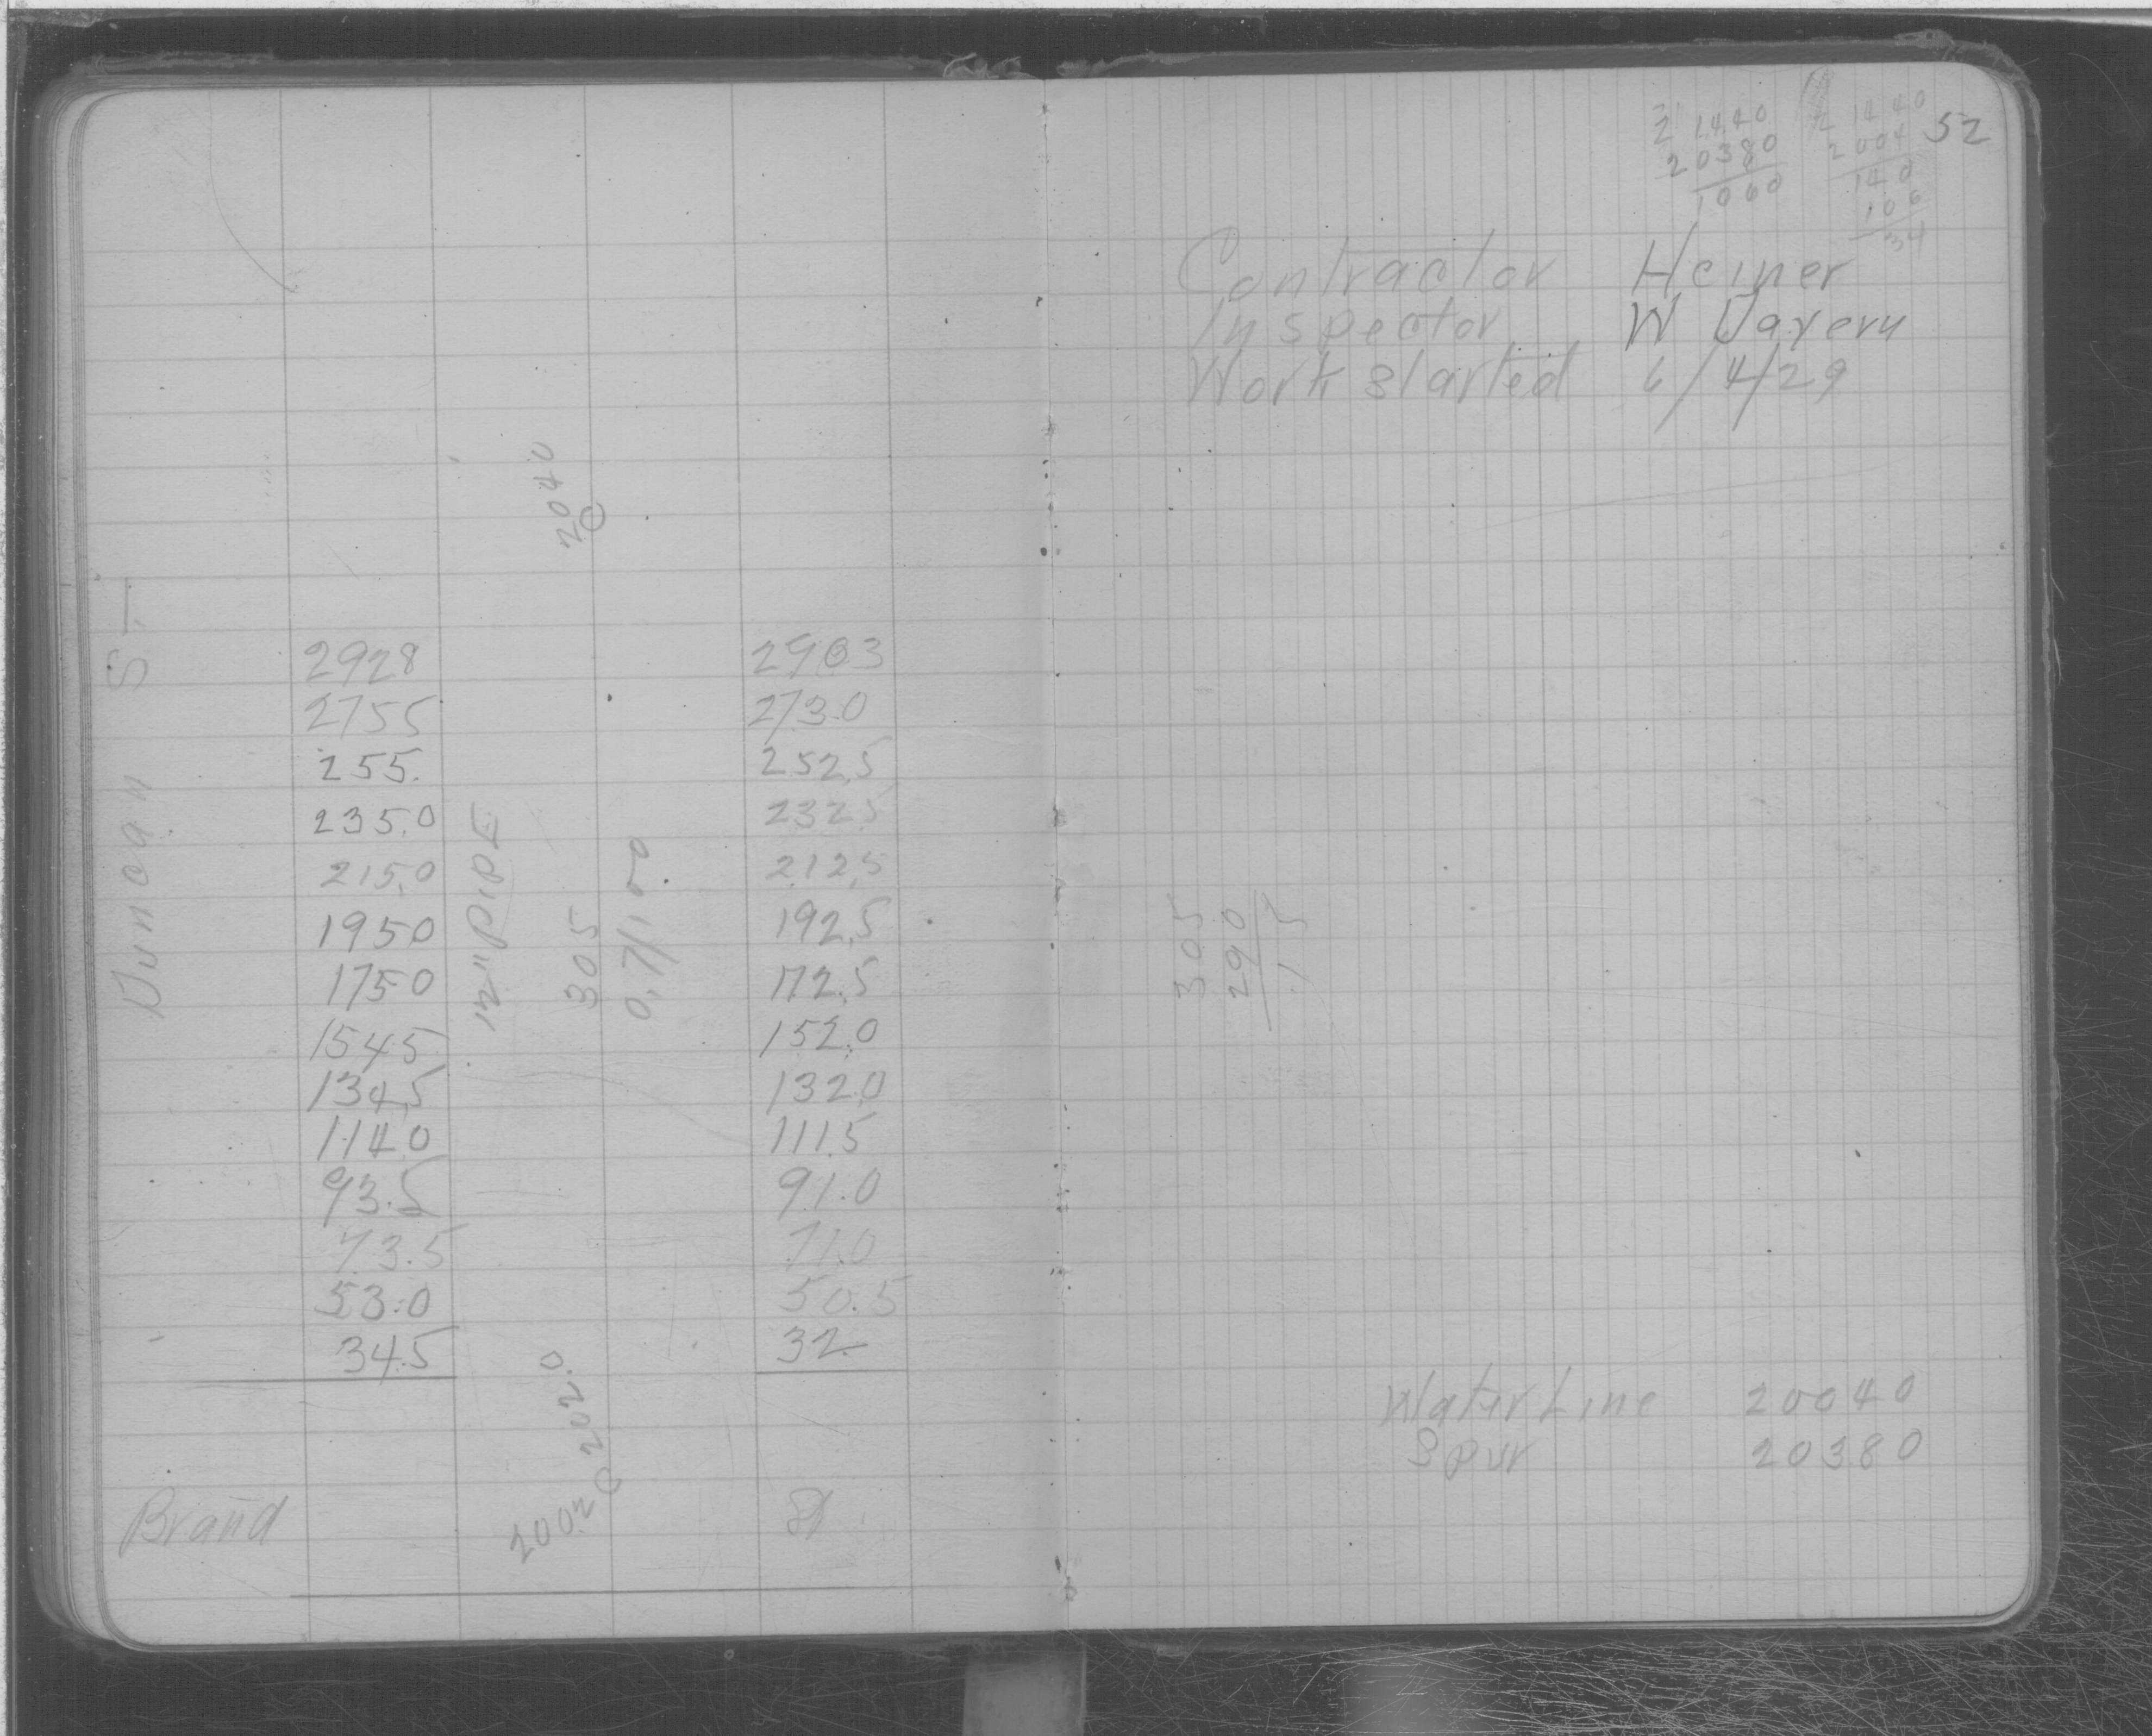 Duncan St
2040
2928 2903
2755 273.0
255. 252.5
235.0 232.5
215.0 212.5
1950 192.5
1750 172.5
1545 152.0
134.5 132.0
114.0 111.5
93.5 91.0
73.5 71.0
53.0 50.5
34.5 32
12" PIPE
305
0.7/100
2002 202.0
Brand St
52
21440
20380
1060
21440
2004
140
106
34
Contractor Heiner
Inspector W Davern
Work Started 6/4/29
305
290
.15
Water Line 20040
Spur 20380